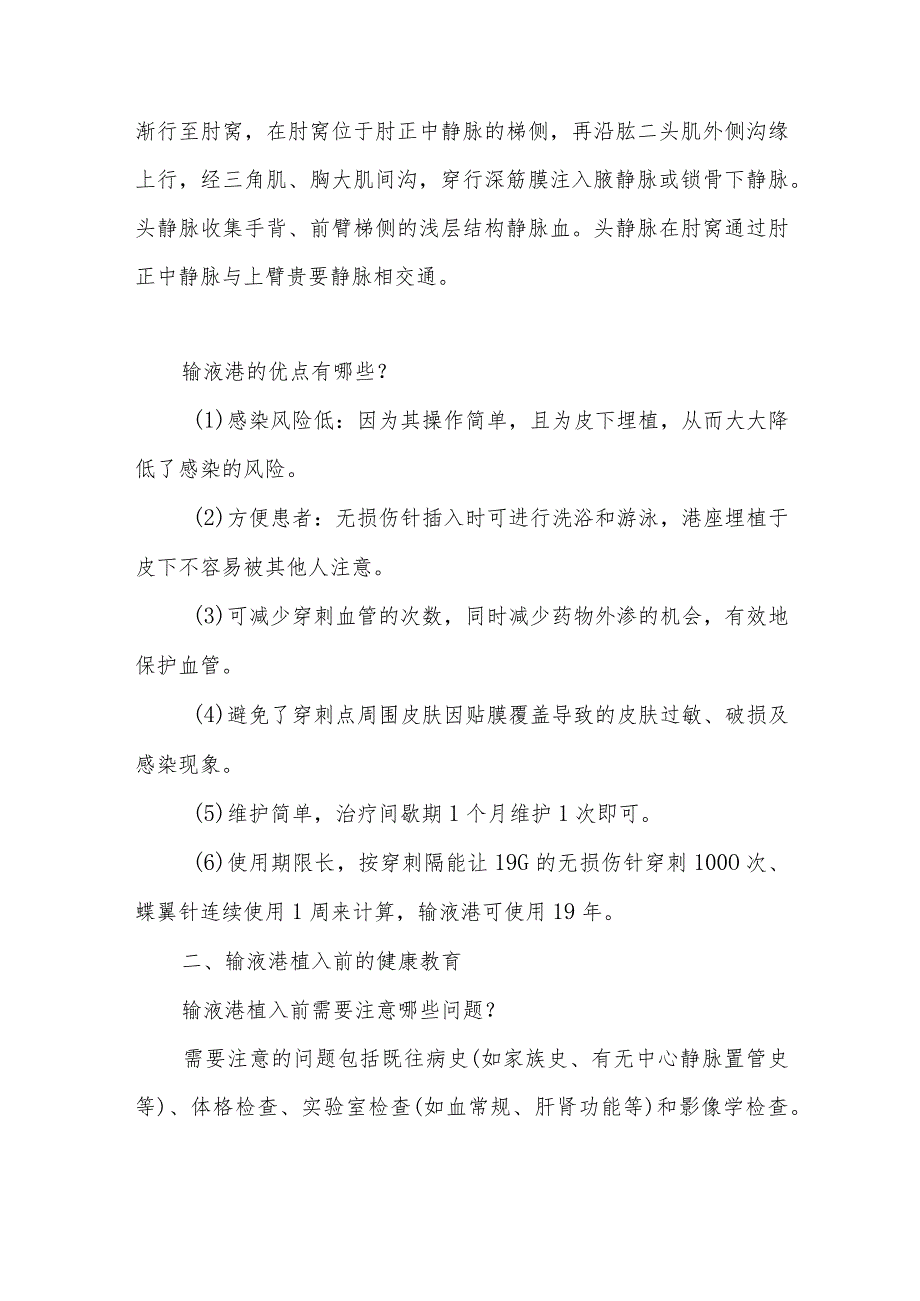 渐行至肘窝，在肘窝位于肘正中静脉的梯侧，再沿肱二头肌外侧沟缘
上行，经三角肌、胸大肌间沟，穿行深筋膜注入腋静脉或锁骨下静脉。
头静脉收集手背、前臂梯侧的浅层结构静脉血。头静脉在肘窝通过肘
正中静脉与上臂贵要静脉相交通。
输液港的优点有哪些？
(1)感染风险低：因为其操作简单，且为皮下埋植，从而大大降
低了感染的风险。
(2)方便患者：无损伤针插入时可进行洗浴和游泳，港座埋植于
皮下不容易被其他人注意。
(3)可减少穿刺血管的次数，同时减少药物外渗的机会，有效地
保护血管。
(4)避免了穿刺点周围皮肤因贴膜覆盖导致的皮肤过敏、破损及
感染现象。
(5)维护简单，治疗间歇期1个月维护1次即可。
(6)使用期限长，按穿刺隔能让19G的无损伤针穿刺1000次、
蝶翼针连续使用1周来计算，输液港可使用19年。
二、输液港植入前的健康教育
输液港植入前需要注意哪些问题？
需要注意的问题包括既往病史(如家族史、有无中心静脉置管史
等)、体格检查、实验室检查(如血常规、肝肾功能等)和影像学检查。